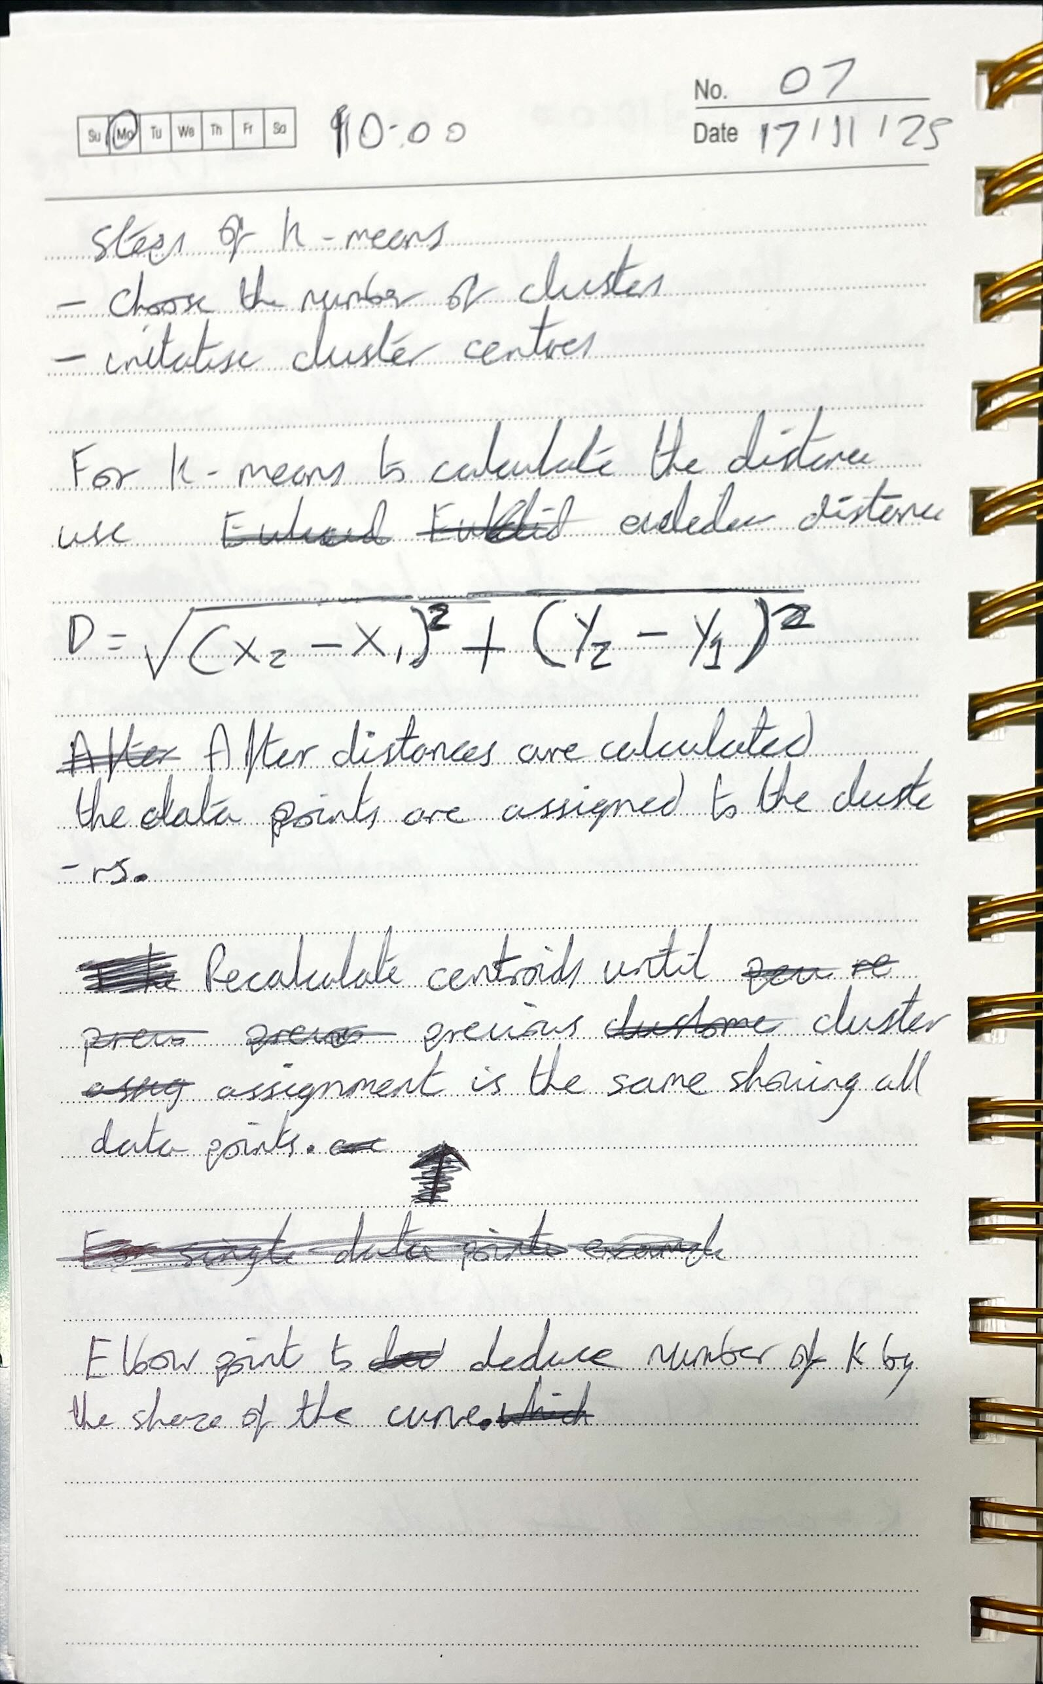 No. 07
Su Mo Tu We Th Fr Sa 10:00
Date 17/11/25
Steps of k-means
- choose the number of clusters
- initalise cluster centres
For k-means to calculate the distance
use Euclid distance
D = √(x₂ - x₁)² + (y₂ - y₁)²
After After distances are calculated
the data points are assigned to the cluste
-rs.
Recalculate centroids until
previous cluster
assignment is the same showing all
data points. are
For single data points example
Elbow point to deduce number of k by
the shape of the curve. which